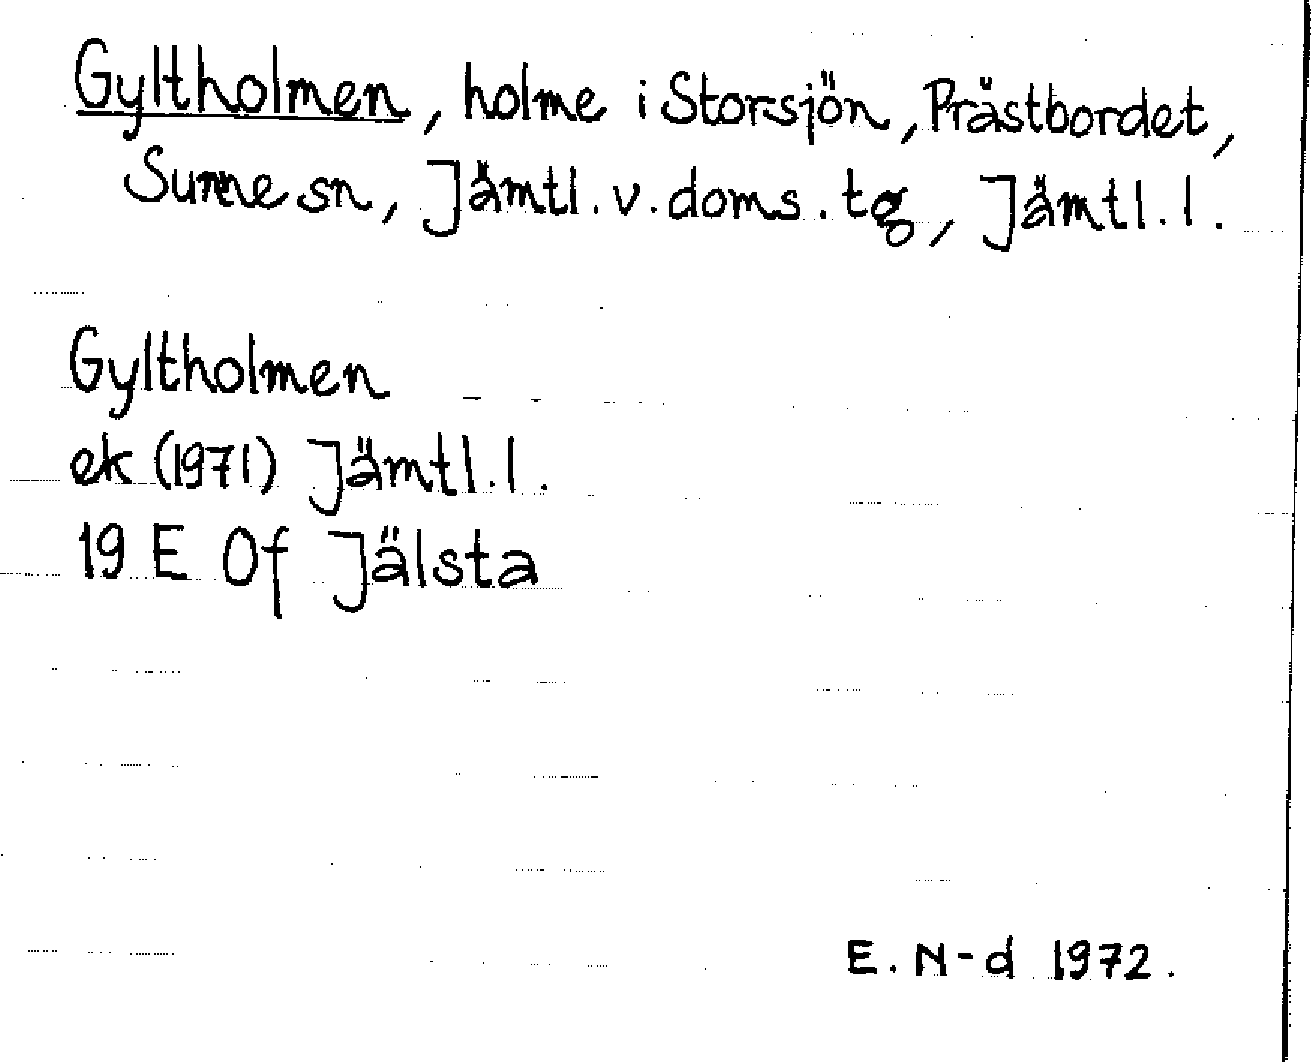 Gyltholmen, holme i Storsjön, Prästbordet,
Sunne sn, Jämtl. v. doms. tg, Jämtl. l.
Gyltholmen
ek (1971) Jämtl. l.
19 E 0f Jälsta
E. N-d 1972.